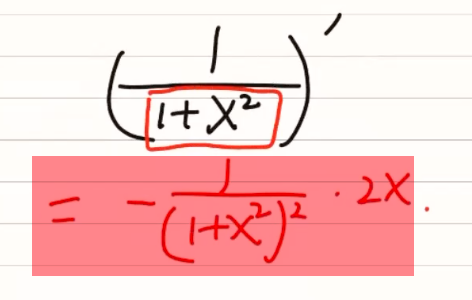 (1/(1+x²))′
= -1/(1+x²)² · 2x.